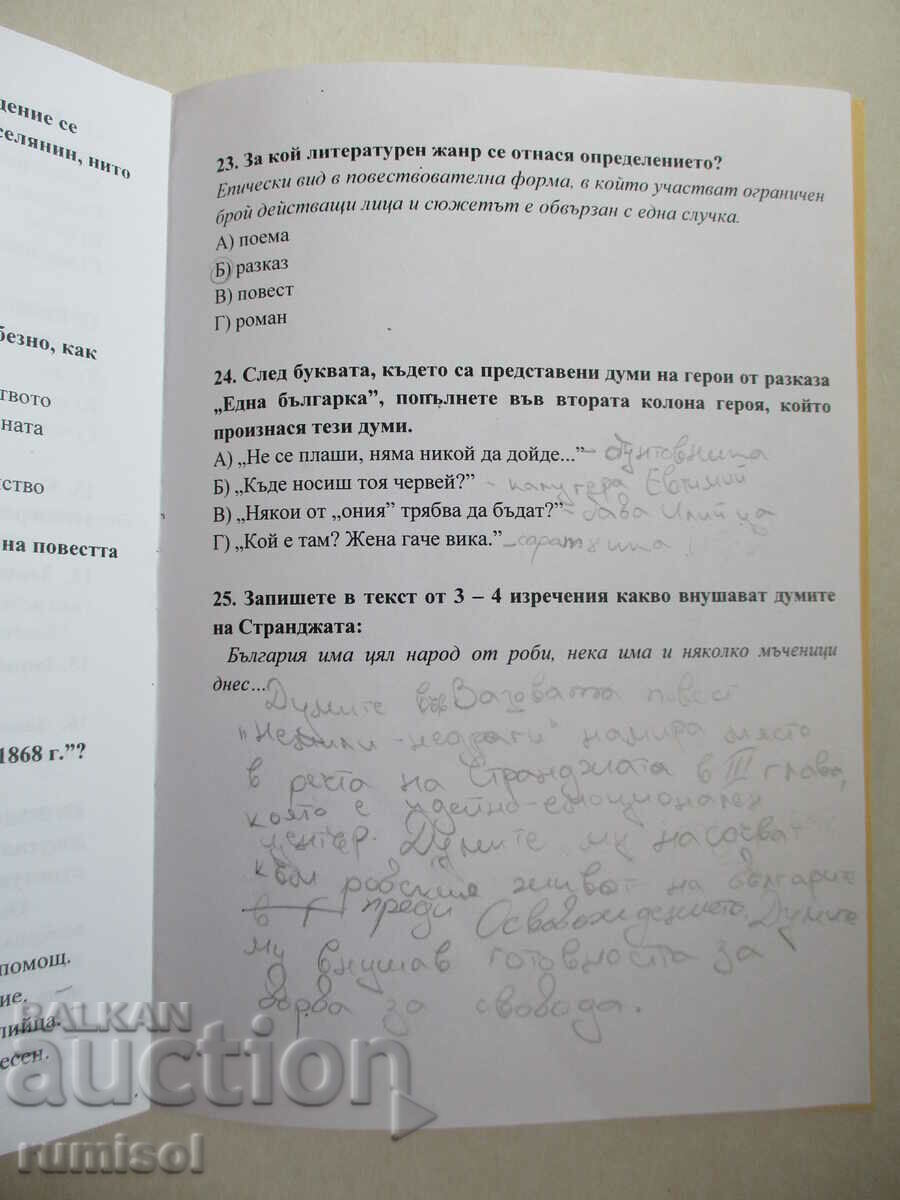 дение се
селянин, нито
безно, как
твото
ната
нство
на повестта
1868 г."?
помощ.
ие.
лийца.
есен.
23. За кой литературен жанр се отнася определението?
Епически вид в повествователна форма, в който участват ограничен
брой действащи лица и сюжетът е обвързан с една случка.
А) поема
Б) разказ
В) повест
Г) роман
24. След буквата, където са представени думи на герои от разказа
„Една българка”, попълнете във втората колона героя, който
произнася тези думи.
А) „Не се плаши, няма никой да дойде...” – бунтовница
Б) „Къде носиш тоя червей?” – калугера Евтимий
В) „Някои от „ония” трябва да бъдат?” – баба Илийца
Г) „Кой е там? Жена гаче вика.” –
25. Запишете в текст от 3 – 4 изречения какво внушават думите
на Странджата:
България има цял народ от роби, нека има и няколко мъченици
днес...
Думите във Вазовата повест
"Немили-недраги" намира място
в речта на Странджата в III глава,
която е идейно-емоционален
център. Думите му насочват
към робския живот на българите
преди Освобождението. Думите
му внушав готовността за
борба за свобода.
BALKAN
auction
rumisol